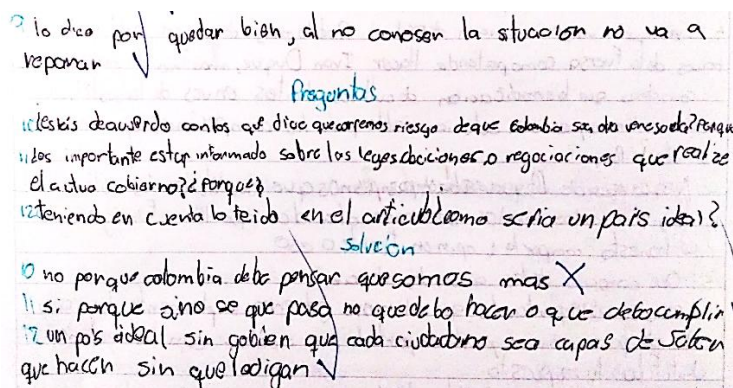 9 lo dice por quedar bien, al no conoser la situacion no va a
reponar
Preguntas
10 ¿estas deacuerdo con los que dice que corremos riesgo de que colombia sea otra venesuela? Porque
11 ¿es importante estar informado sobre las leyes desiciones o negociaciones que realize
el actua cobierno? ¿Porque?
12 teniendo en cuenta lo leido en el articulo como seria un pais ideal?
solucion
10 no porque colombia debe pensar que somos mas X
11 si porque sino se que pasa no que debo hacer o que debo cumplir
12 un país ideal sin gobien que cada ciudadano sea capas de saber
que hacen sin que le digan